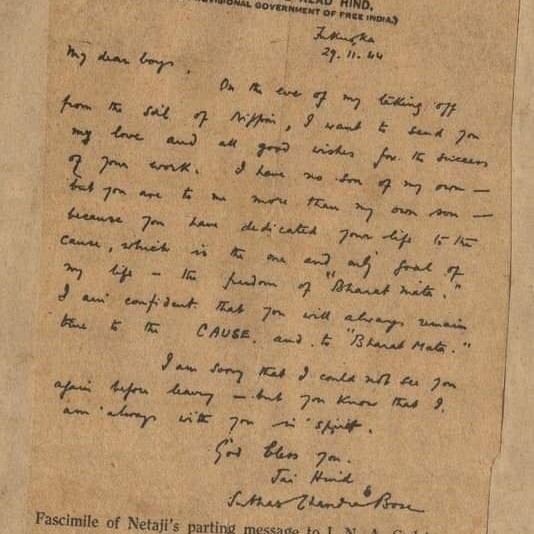 AZAD HIND.
PROVISIONAL GOVERNMENT OF FREE INDIA.)
Fukuoka
29.11.44
My dear boys,
On the eve of my taking off
from the soil of Nippon, I want to send you
my love and all good wishes for the success
of your work. I have no son of my own —
but you are to me more than my own son —
because you have dedicated your life to the
cause, which is the one and only goal of
my life — the freedom of "Bharat Mata."
I am confident that you will always remain
true to the CAUSE and to "Bharat Mata."
I am sorry that I could not see you
again before leaving — but you know that I
am always with you in spirit.
God bless you.
Jai Hind
Subhas Chandra Bose
Fascimile of Netaji's parting message to I. N. A.